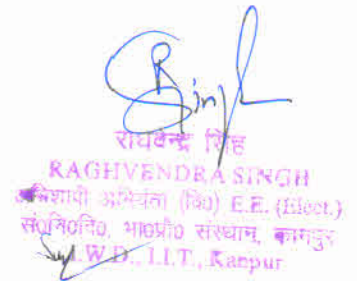 R Singh
राघवेन्द्र सिंह
RAGHVENDRA SINGH
अधिशाषी अभियंता (वि०) E.E. (Elect.)
सं०नि०वि०, भा०प्रौ० संस्थान, कानपुर
I.W.D., I.I.T., Kanpur